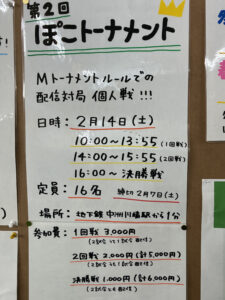 第2回
ぽこトーナメント
Mトーナメントルールでの
配信対局 個人戦 !!!
日時: 2月14日(土)
10:00〜13:55 (1回戦)
14:00〜15:55 (2回戦)
16:00〜 決勝戦
定員: 16名 締切2月7日(土)
場所: 地下鉄 中洲川端駅から1分
参加費: 1回戦 3,000円
2回戦 2,000円 (計5,000円)
決勝戦 1,000円 (計6,000円)